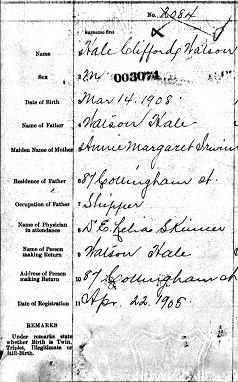 No. 2084
surname first
Name Hale Clifford Watson
Sex 2 M 003074
Date of Birth 3 Mar 14. 1908.
Name of Father 4 Watson Hale
Maiden Name of Mother Annie Margaret Irwin
Residence of Father 6 87 Collingham St.
Occupation of Father 7 Shipper
Name of Physician
in attendance 8 Dr E. Skinner
Name of Person
making Return 9 Watson Hale
Address of Person
making Return 10 87 Collingham St
Date of Registration 11 Apr. 22. 1908.
REMARKS
Under remarks state
whether Birth is Twin,
Triplet, Illegitimate or
Still-Birth.